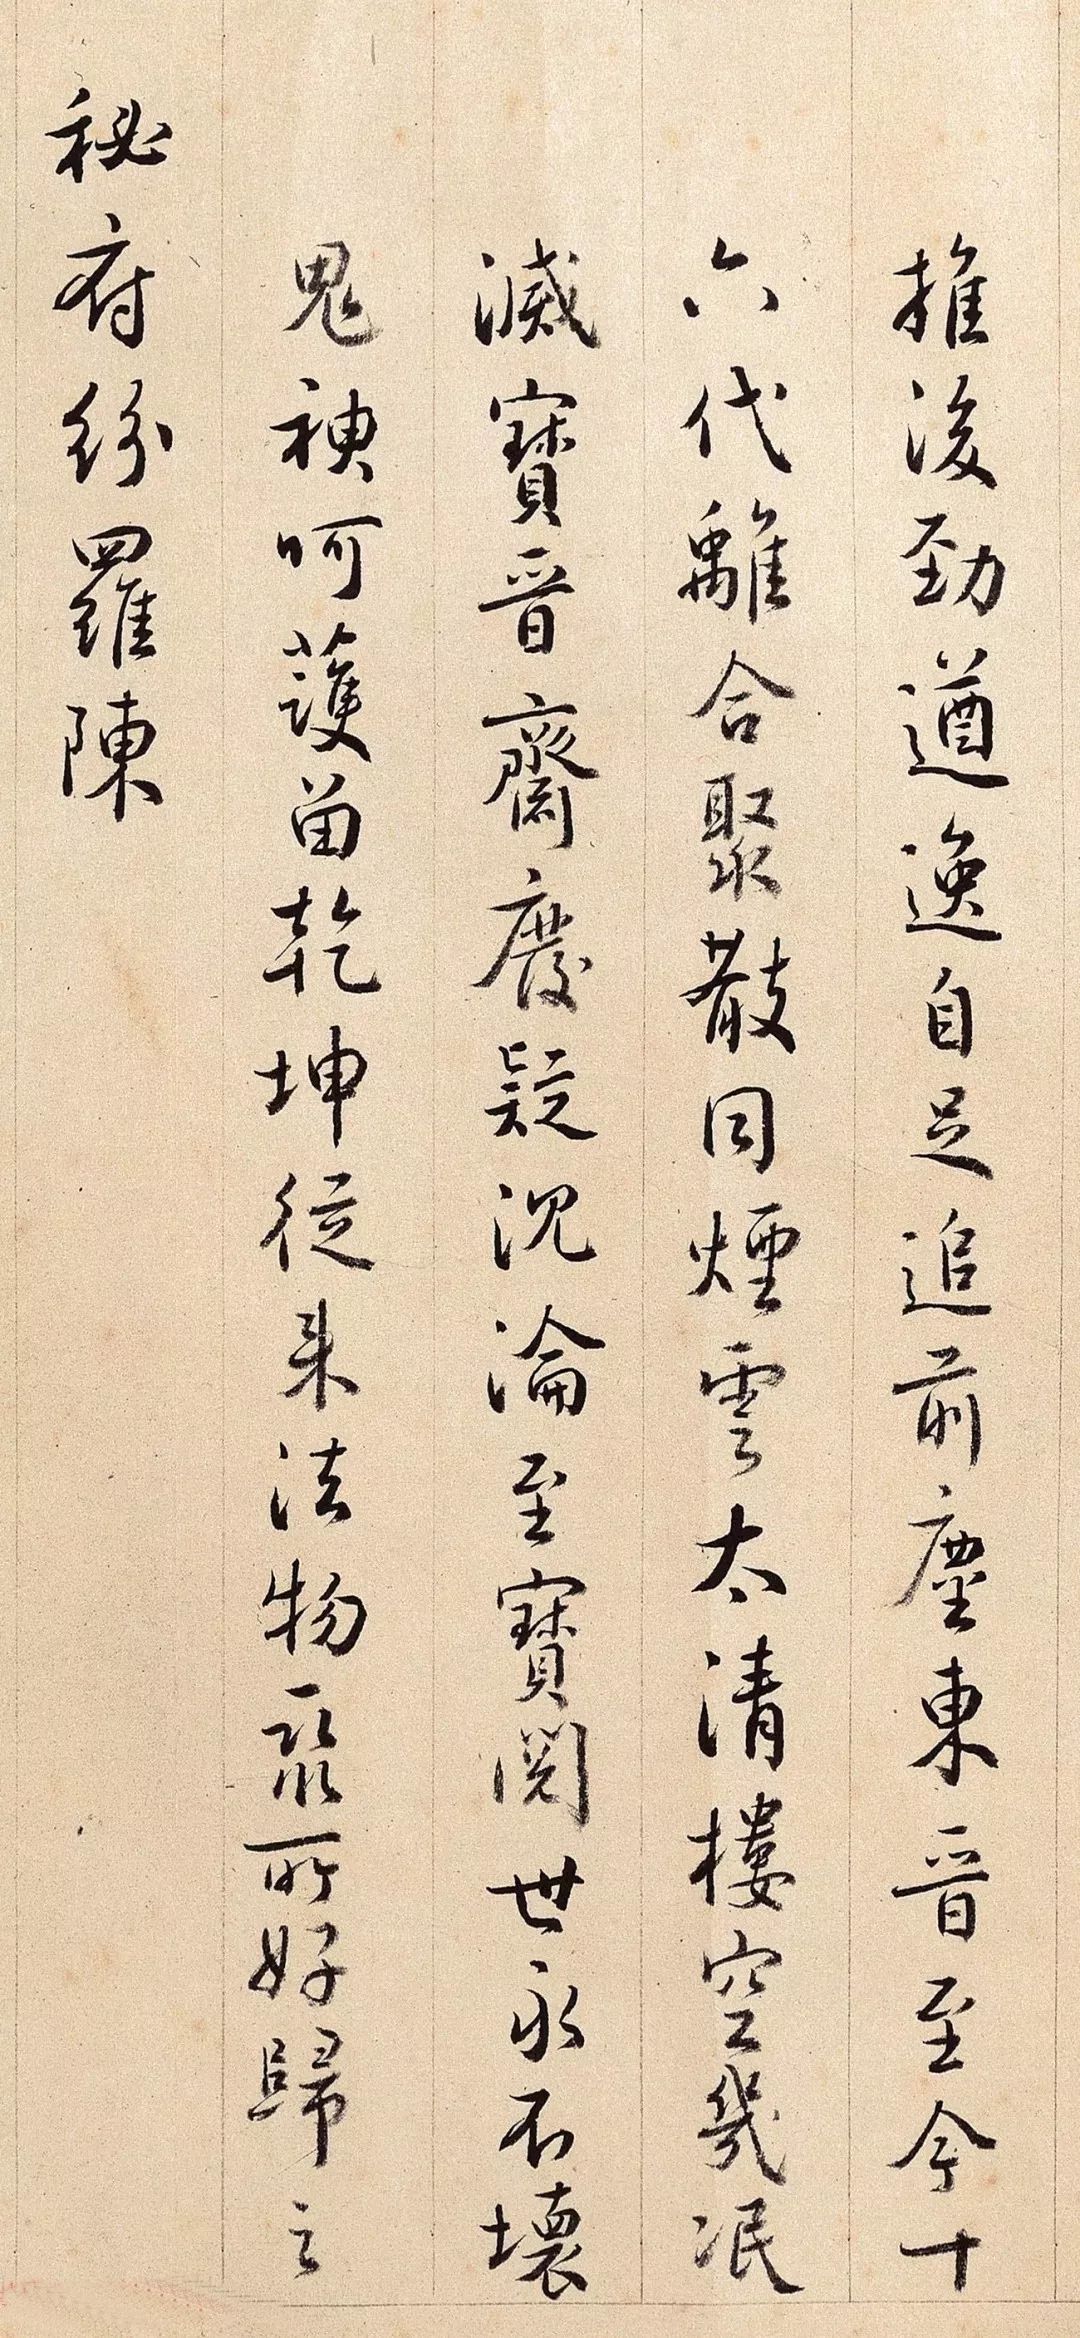 推後勁遒逸自足追前塵東晉至今十
六代離合聚散同煙雲太清樓空幾泯
滅寶晉齋廢疑沉淪至寶閱世永不壞
鬼神呵護留乾坤從来法物聚所好歸之
秘府紛羅陳